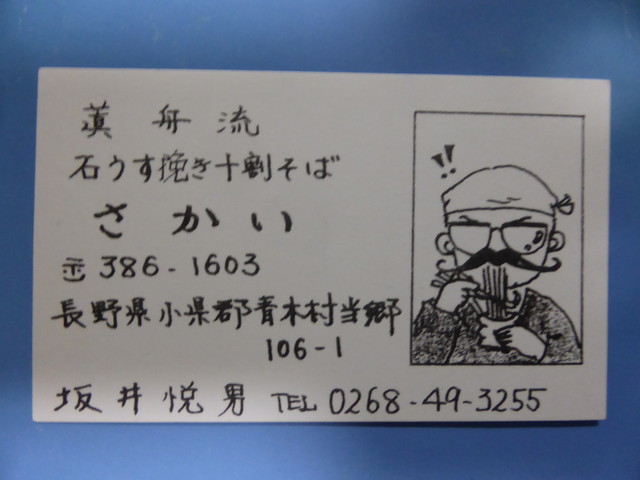 蕇舟流
石うす挽き十割そば
さかい
〒386-1603
長野県小県郡青木村当郷
106-1
坂井悦男 TEL 0268-49-3255
!!